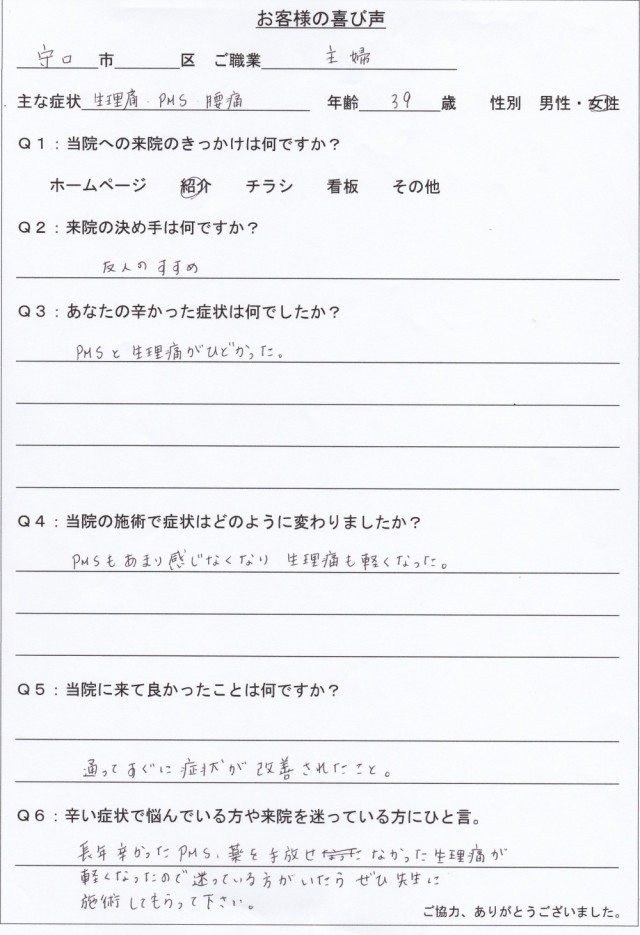 お客様の喜び声
守口市 区 ご職業 主婦
主な症状 生理痛・PMS・腰痛 年齢 39 歳 性別 男性・女性
Q1：当院への来院のきっかけは何ですか？
ホームページ 紹介 チラシ 看板 その他
Q2：来院の決め手は何ですか？
友人のすすめ
Q3：あなたの辛かった症状は何でしたか？
PMSと生理痛がひどかった。
Q4：当院の施術で症状はどのように変わりましたか？
PMSもあまり感じなくなり 生理痛も軽くなった。
Q5：当院に来て良かったことは何ですか？
通ってすぐに症状が改善されたこと。
Q6：辛い症状で悩んでいる方や来院を迷っている方にひと言。
長年辛かったPMS、薬を手放せなかった生理痛が
軽くなったので迷っている方がいたらぜひ先生に
施術してもらって下さい。
ご協力、ありがとうございました。